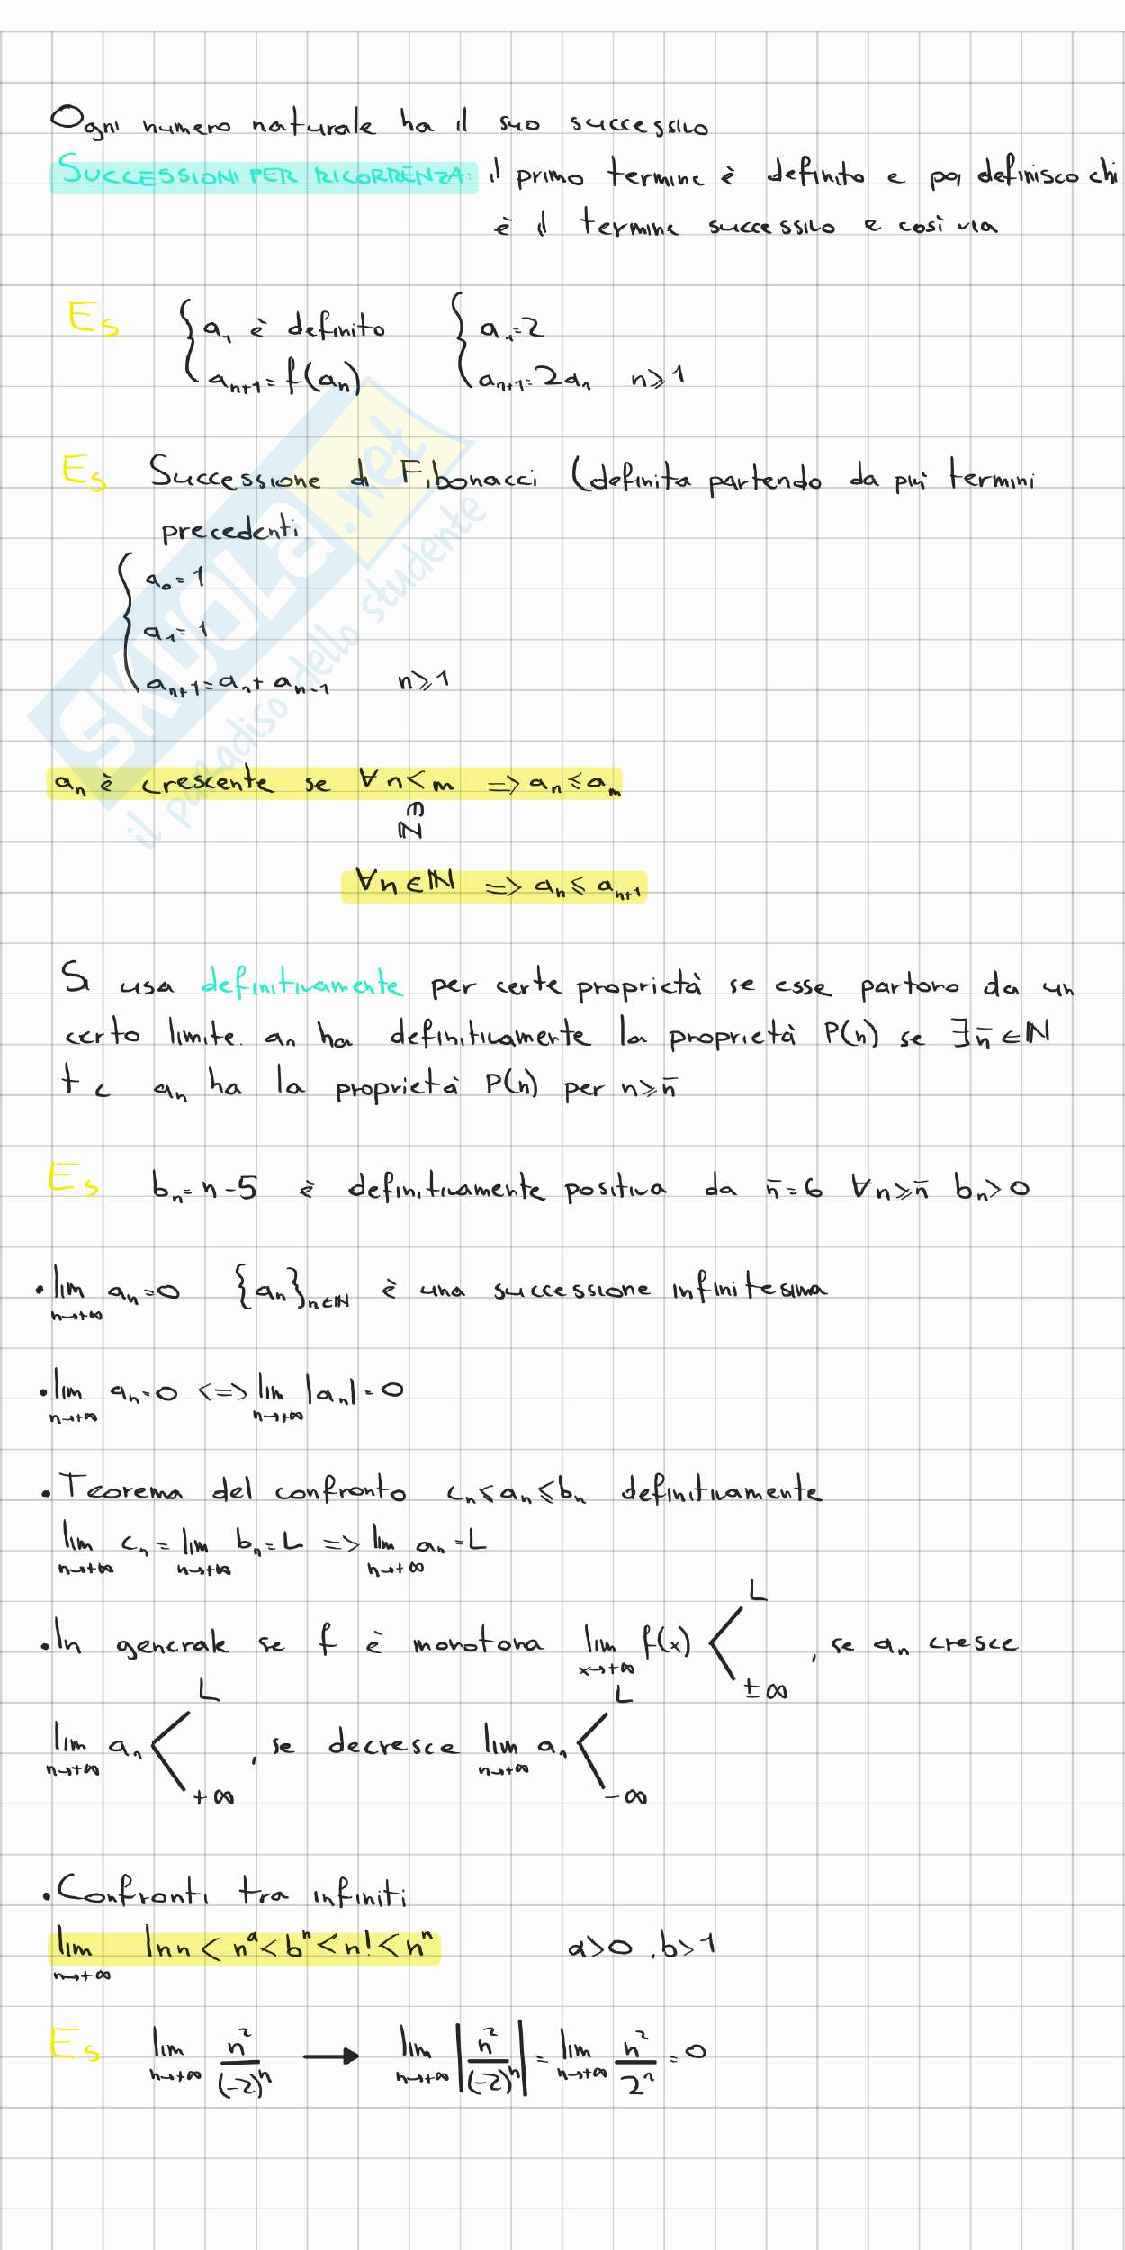 Ogni numero naturale ha il suo successivo
SUCCESSIONI PER RICORRENZA: il primo termine è definito e poi definisco chi
è il termine successivo e così via
Es { a₁ è definito { a₁=2
aₙ₊₁=f(aₙ) aₙ₊₁=2aₙ n≥1
Es Successione di Fibonacci (definita partendo da più termini
precedenti
{ a₀=1
a₁=1
aₙ₊₁=aₙ+aₙ₋₁ n≥1
aₙ è crescente se ∀n<m => aₙ≤aₘ
∈ℕ
∀n∈ℕ => aₙ≤aₙ₊₁
Si usa definitivamente per certe proprietà se esse partono da un
certo limite. aₙ ha definitivamente la proprietà P(n) se ∃n̄∈ℕ
tc aₙ ha la proprietà P(n) per n≥n̄
Es bₙ=n-5 è definitivamente positiva da n̄=6 ∀n≥n̄ bₙ>0
• lim aₙ=0 {aₙ}n∈ℕ è una successione infinitesima
n→+∞
• lim aₙ=0 <=> lim |aₙ|=0
n→+∞ n→+∞
• Teorema del confronto cₙ≤aₙ≤bₙ definitivamente
lim cₙ = lim bₙ=L => lim aₙ=L
n→+∞ n→+∞ n→+∞
L
• In generale se f è monotona lim f(x) < , se aₙ cresce
x→+∞ ±∞
L L
lim aₙ < , se decresce lim aₙ <
n→+∞ n→+∞
+∞ -∞
• Confronti tra infiniti
lim lnn < nᵃ < bⁿ < n! < nⁿ a>0, b>1
n→+∞
Es lim n²/(-2)ⁿ → lim |n²/(-2)ⁿ| = lim n²/2ⁿ = 0
n→+∞ n→+∞ n→+∞
SKUOLA.net
il paradiso dello studente